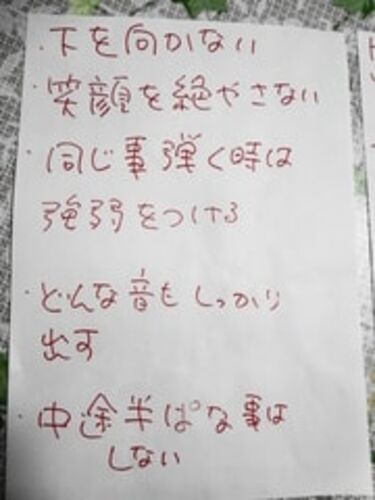 ・下を向かない
・笑顔を絶やさない
・同じ事弾く時は
強弱をつける
・どんな音もしっかり
出す
・中途半ぱな事は
しない